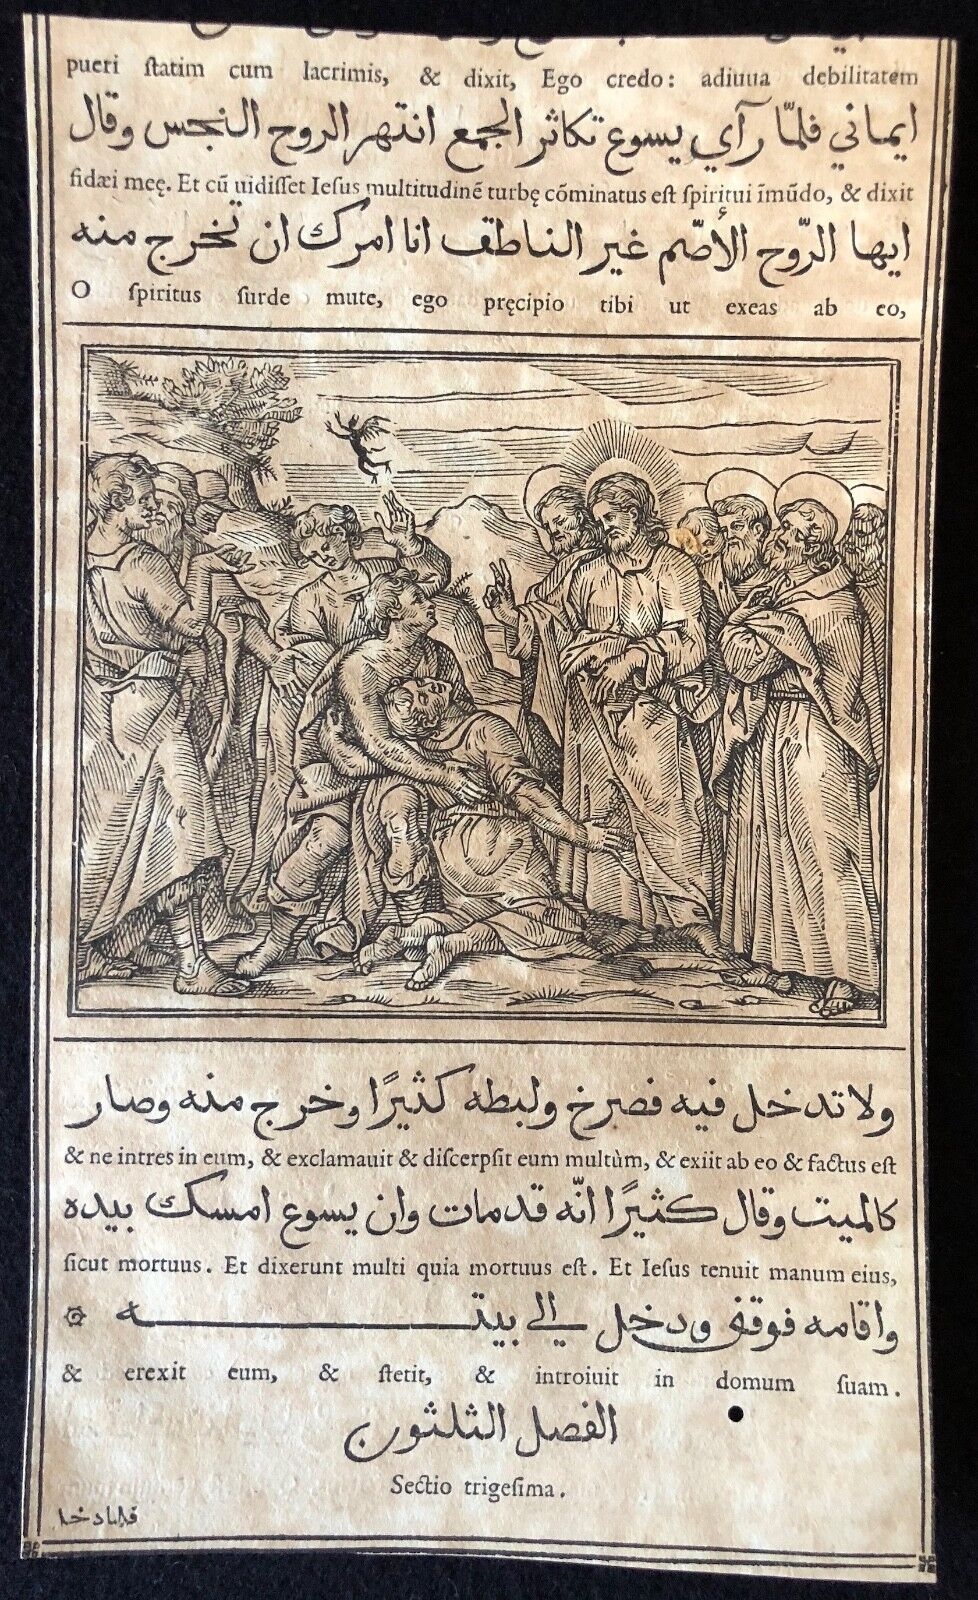 pueri ſtatim cum lacrimis, & dixit, Ego credo: adiuua debilitatem
ايماني فلمّا رآي يسوع تكاثر الجمع انتهر الروح النجس وقال
fidæi meę. Et cũ uidiſſet Ieſus multitudinẽ turbę cõminatus eſt ſpiritui ĩmũdo, & dixit
ايها الرّوح الأصّم غير الناطق انا امرك ان تخرج منه
O ſpiritus ſurde mute, ego pręcipio tibi ut exeas ab eo,
ولا تدخل فيه فصرخ ولبطه كثيرًا وخرج منه وصار
& ne intres in eum, & exclamauit & diſcerpſit eum multùm, & exiit ab eo & factus eſt
كالميت وقال كثيرًا انّه قد مات وان يسوع امسك بيده
ſicut mortuus. Et dixerunt multi quia mortuus eſt. Et Ieſus tenuit manum eius,
واقامه فوقف ودخل الي بيته
& erexit eum, & ſtetit, & introiuit in domum ſuam.
الفصل الثلثون
Sectio trigeſima.
فلما دخل